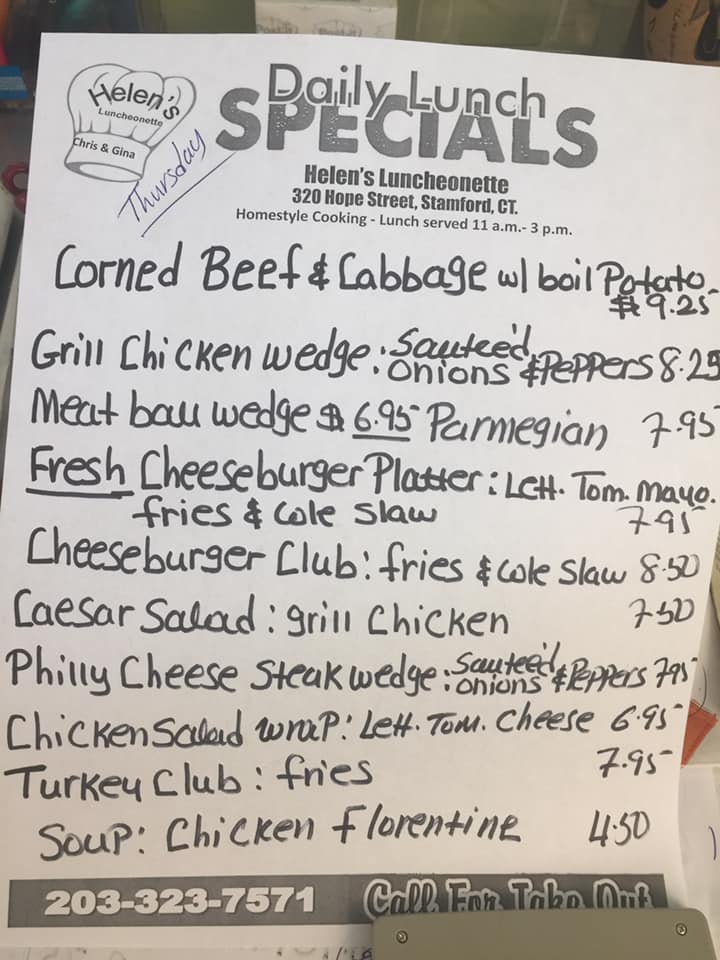 Helen's
Luncheonette
Chris & Gina
Thursday
Daily Lunch
SPECIALS
Helen's Luncheonette
320 Hope Street, Stamford, CT.
Homestyle Cooking - Lunch served 11 a.m.- 3 p.m.
Corned Beef & Cabbage w/ boil Potato
$9.25
Grill Chicken wedge: Sauteé'd Onions & Peppers 8.25
Meat ball wedge $ 6.95 Parmegian 7.95
Fresh Cheeseburger Platter: Lett. Tom. Mayo.
fries & Cole Slaw 7.95
Cheeseburger Club: fries & Cole Slaw 8.50
Caesar Salad: grill Chicken 7.50
Philly Cheese Steak wedge: Sauteé'd Onions & Peppers 7.95
Chicken Salad wrap: Lett. Tom. Cheese 6.95
Turkey Club: fries 7.95
Soup: Chicken Florentine 4.50
203-323-7571 Call For Take Out